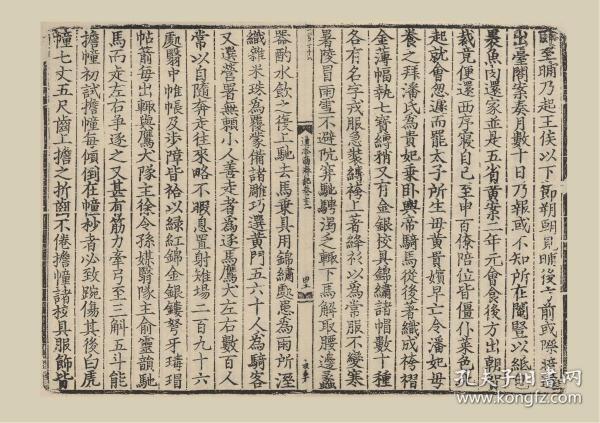 臥至晡乃起王侯以下節朔朝見晡後方前或際暗遣
出臺閣案奏月數十日乃報或不知所在閹豎以紙包
裹魚肉還家並是五省黃案二年元會食後方出朝賀
裁竟便還西序寢自巳至申百僚陪位皆僵仆菜色
起就會忽遽而罷太子所生母黃貴嬪早亡令潘妃母
養之拜潘氏為貴妃乗臥輿帝騎馬從後著織成袴褶
金薄帽執七寶縛矟又有金銀校具錦繡諸帽數十種
各有名字戎服急裝縛袴上著絳衫以為常服不變寒
暑陵冒雨雪不避阬穽馳騁渴乏輒下馬解取腰邊蠡
器酌水飲之復上馳去馬乗具用錦繡處患為雨所溼
織雜采珠為覆蒙備諸雕巧選黃門五六十人為騎客
又選營署無頼小人善走者為逐馬鷹犬左右數百人
常以自隨奔走往來略不暇息置射雉場二百九十六
處翳中帷帳及步障皆袷以綠紅錦金銀鏤弩牙瑇瑁
帖箭每出輒與鷹犬隊主徐令孫媒翳隊主俞靈韻馳
馬而走左右爭逐之又甚有筋力牽弓至三斛五斗能
擔幢初試擔幢每傾倒在幢杪者必致踠傷其後白虎
幢七丈五尺齒上擔之折齒不倦擔幢諸校具服飾皆
孔夫子旧书网